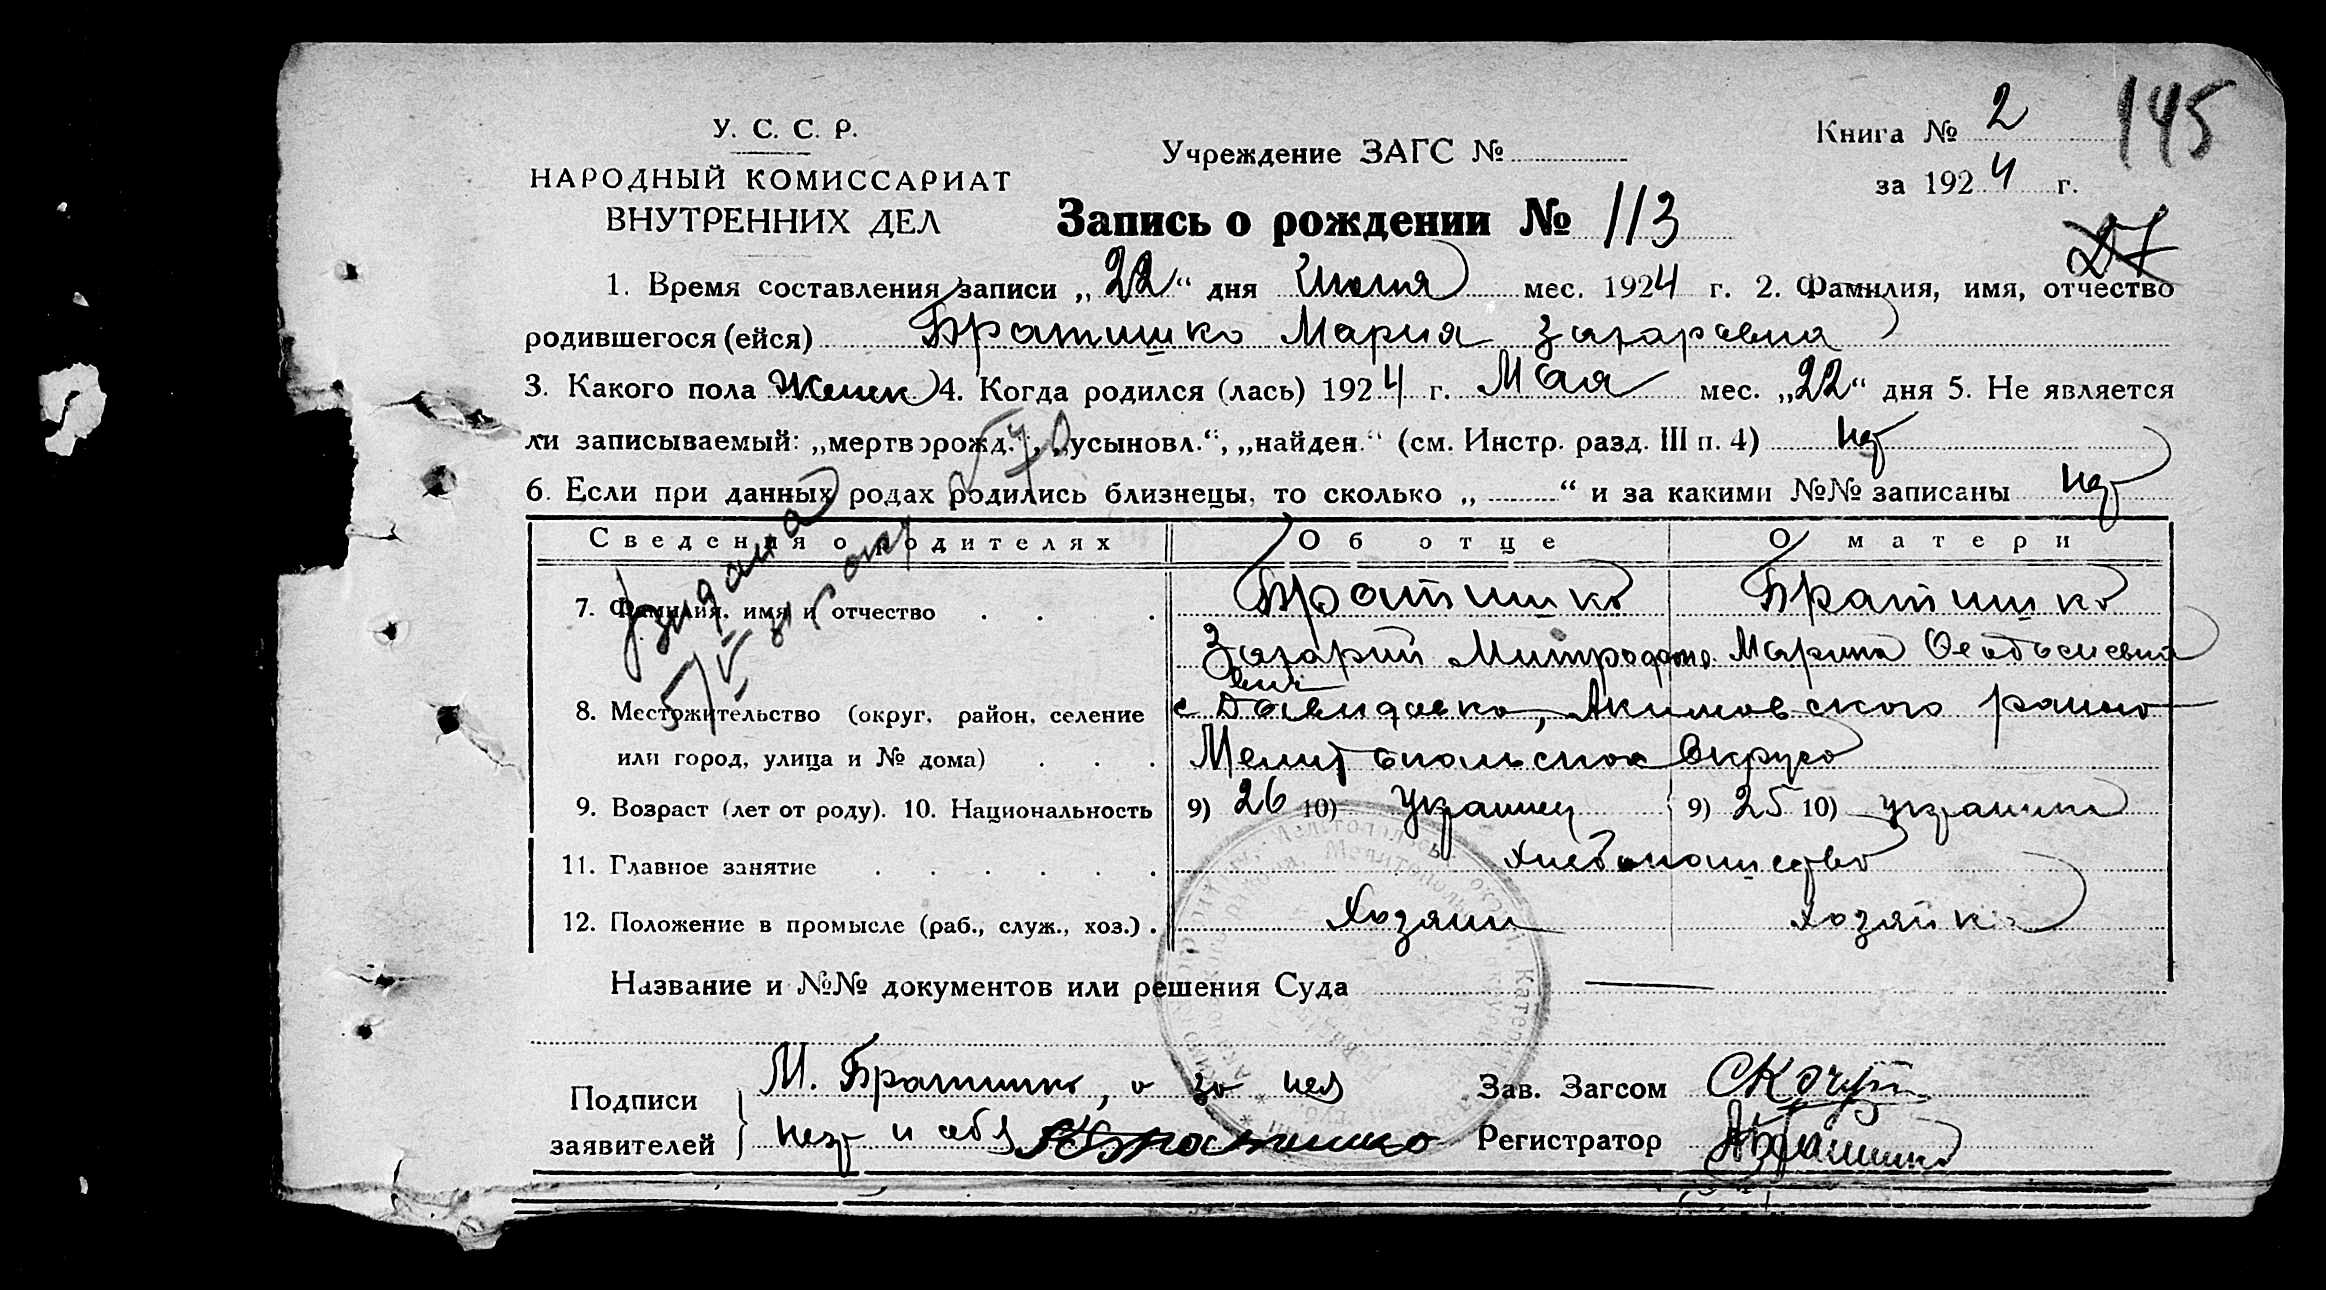 145
У. С. С. Р.
НАРОДНЫЙ КОМИССАРИАТ
ВНУТРЕННИХ ДЕЛ
Учреждение ЗАГС №
Книга № 2
за 1924 г.
Запись о рождении № 113
27
1. Время составления записи „22“ дня Июля мес. 1924 г. 2. Фамилия, имя, отчество
родившегося (ейся) Братишко Мария Захаровна
3. Какого пола Женск 4. Когда родился (лась) 1924 г. Мая мес. „22“ дня 5. Не является
ли записываемый: „мертворожд.“, „усыновл.“, „найден.“ (см. Инстр. разд. III п. 4) нет
6. Если при данных родах родились близнецы, то сколько „ “ и за какими №№ записаны нет
Сведения о родителях Об отце О матери
7. Фамилия, имя и отчество Братишко Братишко
Захарий Митрофано Марина
вич
8. Местожительство (округ, район, селение с Давидовка, Акимовского район
или город, улица и № дома) Мелитопольского Округа
9. Возраст (лет от роду). 10. Национальность 9) 26 10) Украинец 9) 25 10) украинка
11. Главное занятие хлебопашество
12. Положение в промысле (раб., служ., хоз.) Хозяин хозяйка
Название и №№ документов или решения Суда
Подписи
заявителей
М. Братишко, а за нея
негр и себя Братишко
Зав. Загсом
Регистратор Братишко